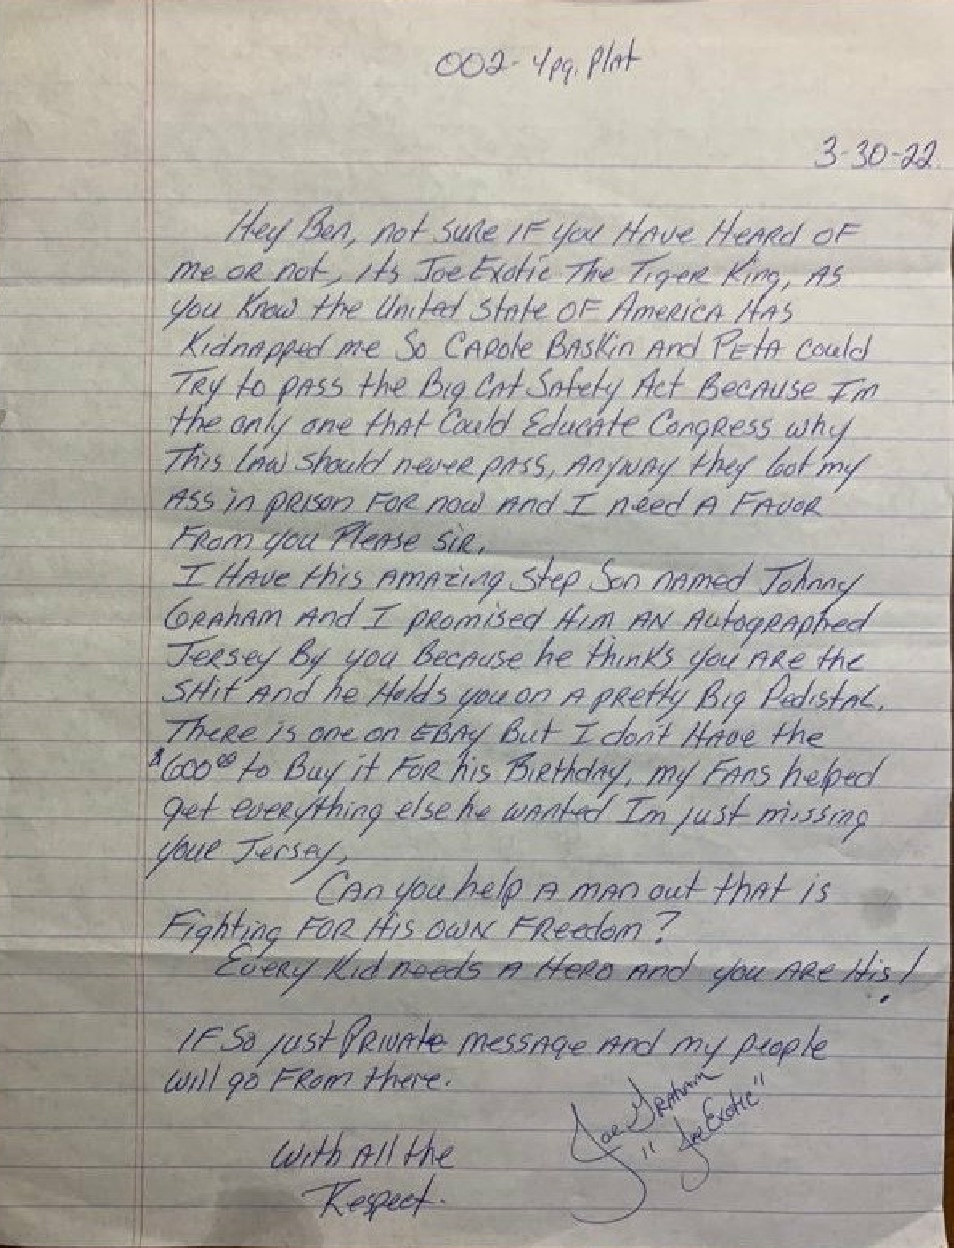 002-4pg. Plat
3-30-22.
Hey Ben, not sure IF you Have Heard OF
me or not, its Joe Exotic The Tiger King, As
you Know the United State OF America Has
Kidnapped me So Carole Baskin And Peta Could
Try to pass the Big Cat Safety Act Because Im
the only one that Could Educate Congress why
This law should never pass, Anyway they Got my
Ass in prison For now And I need A Favor
From you Please sir,
I Have this Amazing Step Son named Johnny
Graham And I promised Him An Autographed
Jersey By you Because he thinks you Are the
Shit And he Holds you on A pretty Big Pedistal.
There is one on EBAy But I don't Have the
$600.00 to Buy it For his Birthday, my Fans helped
get everything else he wanted Im just missing
your Jersey,
Can you help A man out that is
Fighting For His own Freedom?
Every Kid needs A Hero And you Are His!
IF So just Private message And my people
will go From there.
Joe Graham
"Joe Exotic"
With All the
Respect.